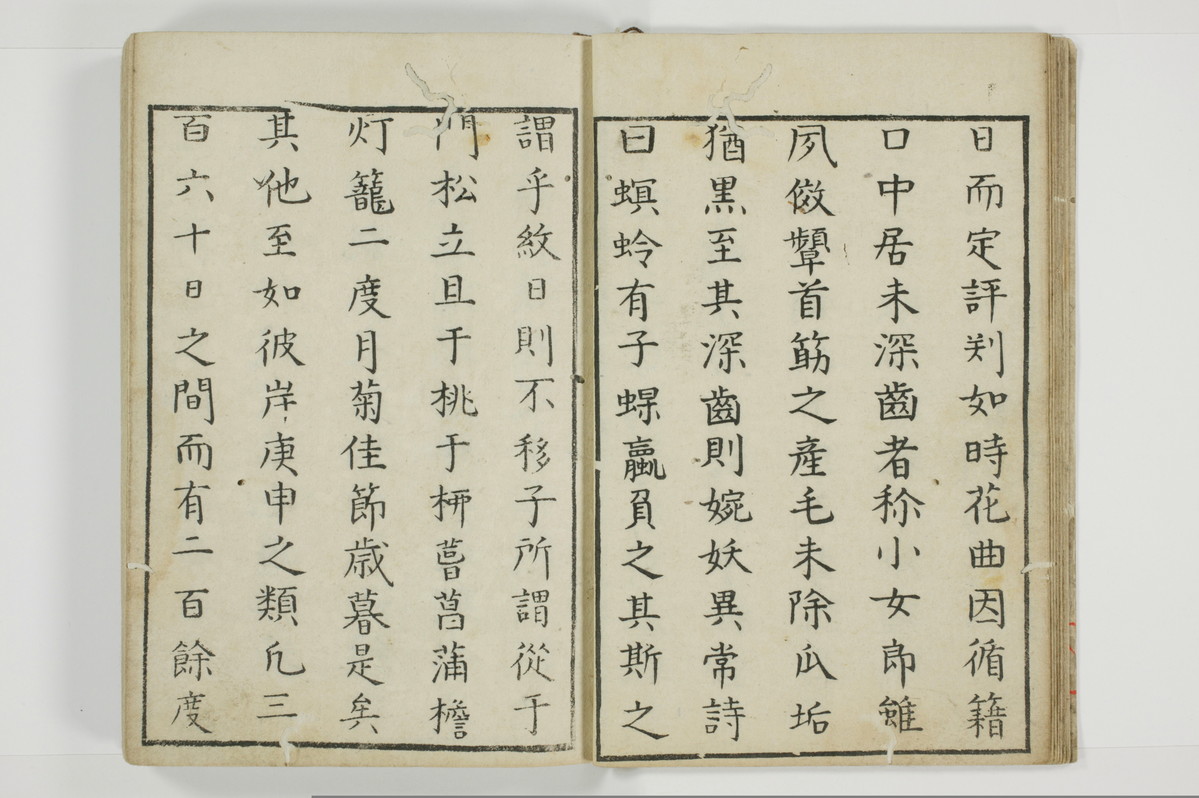 日而定評判如時花曲因循籍
口中居未深齒者称小女郎雖
夙倣顰首筋之產毛未除瓜垢
猶黒至其深齒則婉妖異常詩
曰螟蛉有子蜾蠃負之其斯之
謂乎紋日則不移子所謂從于
門松立且于桃于栁菖菖蒲檐
灯籠二度月菊佳節歳暮是矣
其他至如彼岸庚申之類凡三
百六十日之間而有二百餘度